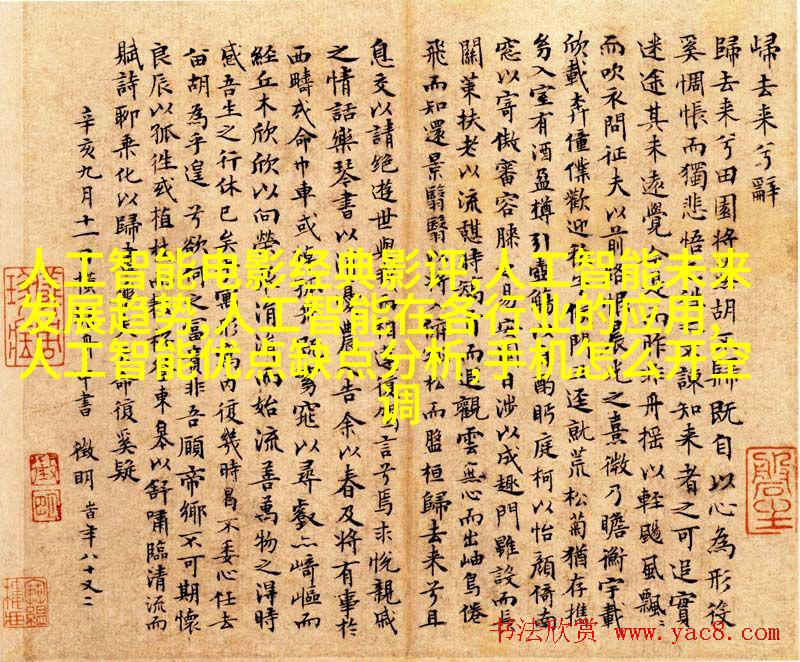 歸去来兮辭
歸去来兮田園將蕪胡不歸既自以心為形役
奚惆悵而獨悲悟已往之不諫知来者之可追實
迷途其未遠覺今是而昨非舟搖以輕颺風飄〻
而吹衣問征夫以前路恨晨光之熹微乃瞻衡宇載
欣載奔僮僕歡迎稚子候門三逕就荒松菊猶存携
幼入室有酒盈樽引壺觴以自酌眄庭柯以怡顏倚南
窓以寄傲審容膝之易安園日涉以成趣門雖設而長
關策扶老以流憩時矯首而遐觀雲無心而出岫鳥倦
飛而知還景翳翳以將入撫孤松而盤桓歸去来兮且
息交以請絕遊世與我而相違復駕言兮焉求悅親戚
之情話樂琴書以消憂農人告余以春及將有事於
西疇或命巾車或棹孤舟既窈窕以尋壑亦崎嶇而
經丘木欣欣以向榮泉涓涓而始流善萬物之得時
感吾生之行休已矣乎寓形宇內復幾時曷不委心任去
留胡為乎遑遑兮欲何之富貴非吾願帝鄉不可期懷
良辰以孤往或植杖而耘耔登東皋以舒嘯臨清流而
賦詩聊乘化以歸盡樂夫天命復奚疑
辛亥九月十一日舟中書 徵明 時年八十又二
人工智能电影经典影评,人工智能未来
发展趋势,人工智能在各行业的应用,
人工智能优点缺点分析,手机怎么开空
调
书法欣赏 www.yac8.com